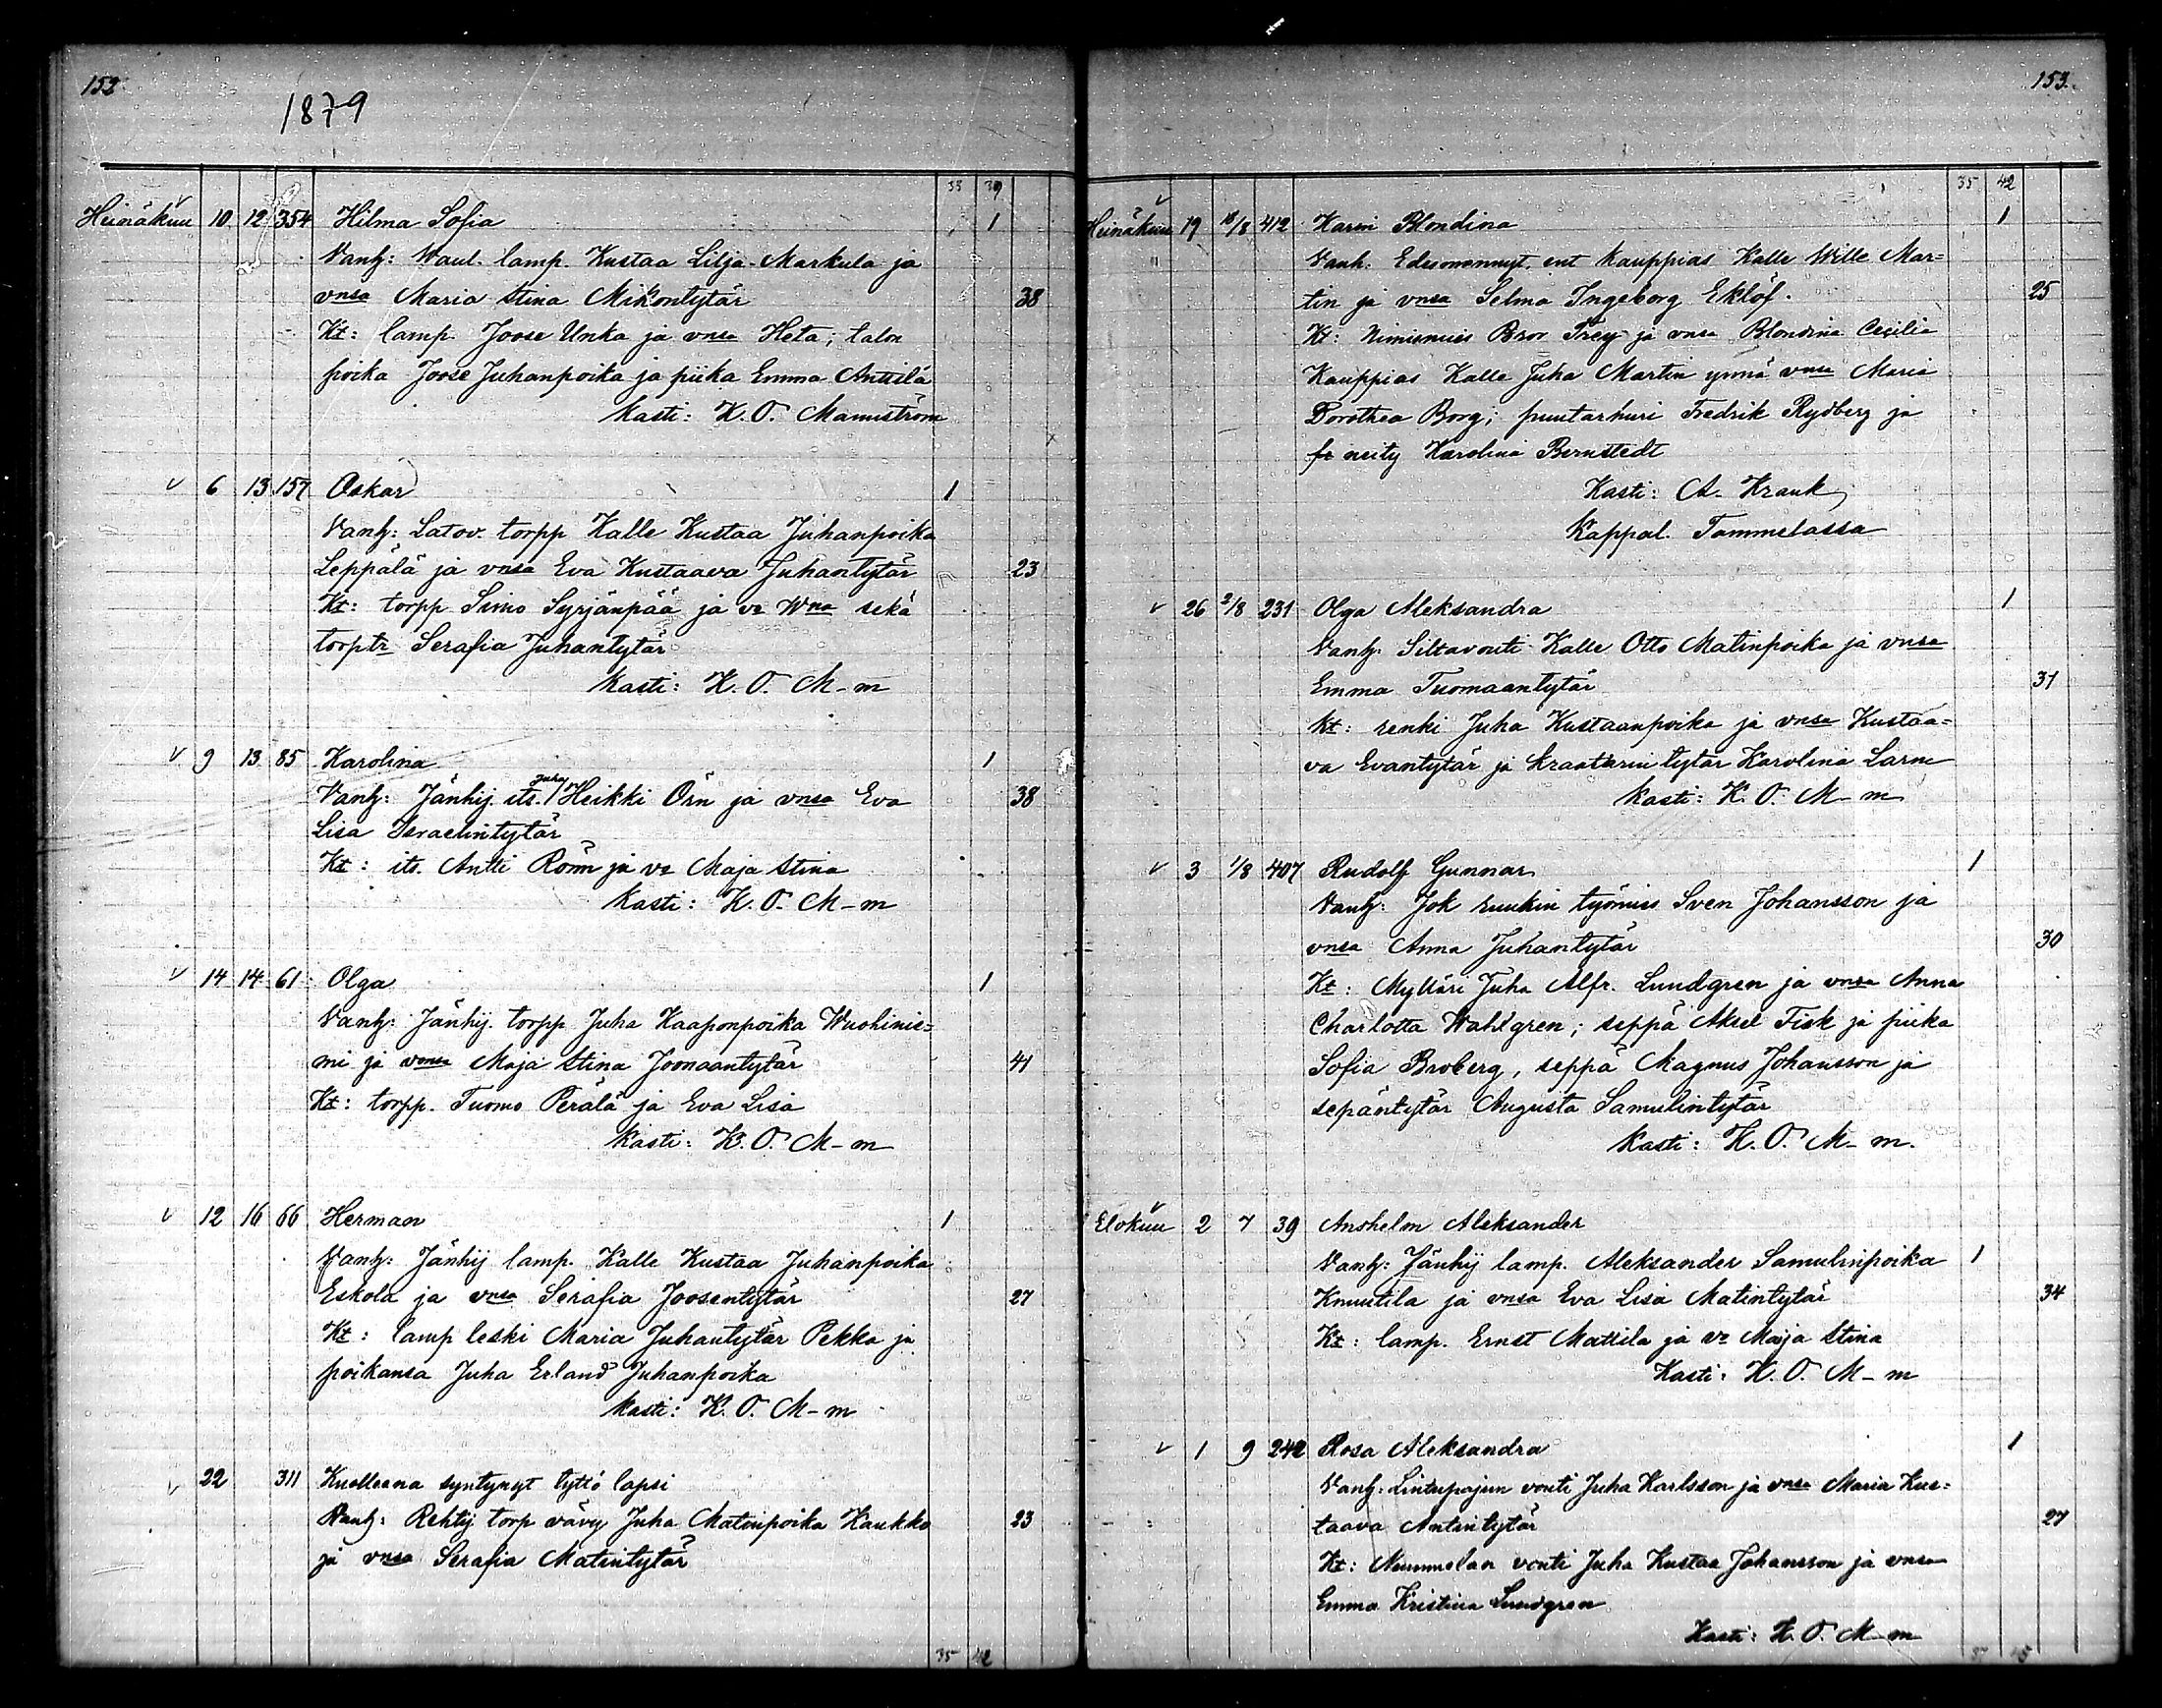 152
1879
33 39
Heinäkuu 10 12 354 Hilma Sofia 1
Vanh: Waul. lamp. Kustaa Lilja-Markula ja
vnsa Maria Stina Mikontytär 38
Kt: lamp. Joose Unka ja vnsa Heta; talon
poika Joose Juhanpoika ja piika Emma Anttila
Kasti: K. O. Mannström
v 6 13 157 Oskar 1
Vanh: Latov. torpp Kalle Kustaa Juhanpoika
Leppälä ja vnsa Eva Kustaava Juhantytär 23
Kt: torpp Simo Syrjänpää ja vr Wna sekä
torptr Serafia Juhantytär
Kasti: K. O. M-m
v 9 13 85 Karolina 1
Vanh: Jänhij. its. Juha Heikki Örn ja vnsa Eva 38
Lisa Israelintytär
Kt: its. Antti Rönn ja vr Maja Stina
Kasti: K. O. M-m
v 14 14 61 Olga 1
Vanh: Jänhij. torpp Juha Kaaponpoika Wuohinie=
mi ja vnsa Maja Stina Joonaantytär 41
Kt: torpp. Tuomo Perälä ja Eva Lisa
Kasti: K. O. M-m
v 12 16 66 Herman 1
Vanh: Jänhij lamp. Kalle Kustaa Juhanpoika
Eskola ja vnsa Serafia Joosentytär 27
Kt: lamp leski Maria Juhantytär Pekka ja
poikansa Juha Erland Juhanpoika
Kasti: K. O. M-m
v 22 311 Kuolleena syntynyt tyttö lapsi
Vanh: Rehtij torp vävy Juha Matinpoika Kaukko 23
ja vnsa Serafia Matintytär
35 42
153.
35 42
Heinäkuu 19 /8 412 Karin Blondina 1
Vanh. ent Kauppias Kalle Wille Mar=
tin ja vnsa Selma Ingeborg Eklöf. 25
Kt: Nimismies Bror Frey ja vnsa Blondina Cecilia
Kauppias Kalle Juha Martin ynnä vnsa Maria
Dorothea Borg; puutarhuri Fredrik Rydberg ja
neity Karolina Bernstedt
Kasti: A. Krank
Kappal. Tammelassa
v 26 2/8 231 Olga Aleksandra 1
Vanh. Siltavouti Kalle Otto Matinpoika ja vnsa
Emma Tuomaantytär 31
Kt: renki Juha Kustaanpoika ja vnsa Kustaa=
va Evantytär ja kraatarin tytär Karolina Larm
Kasti: K. O. M-m
v 3 1/8 407 Rudolf Gunnar 1
Vanh: Jok ruukin työmies Sven Johansson ja
vnsa Anna Juhantytär 30
Kt: Mylläri Juha Alfr. Lundgren ja vnsa Anna
Charlotta Wahlgren; seppä Aksel Fisk ja piika
Sofia Broberg, seppä Magnus Johansson ja
sepäntytär Augusta Samulintytär
Kasti: K. O. M-m.
Elokuu 2 7 39 Anshelm Aleksander
Vanh: Jänhij lamp. Aleksander Samulinpoika 1
Knuutila ja vnsa Eva Lisa Matintytär 34
Kt: lamp. Ernst Mattila ja vr Maja Stina
Kasti: K. O. M-m
v 1 9 242 Rosa Aleksandra 1
Vanh: Lintupajun vouti Juha Karlsson ja vnsa Maria Kus=
taava Antintytär 27
Kt: Nummelan vouti Juha Kustaa Johansson ja vnsa
Emma Kristina Lundgren
Kasti: K. O. M-m